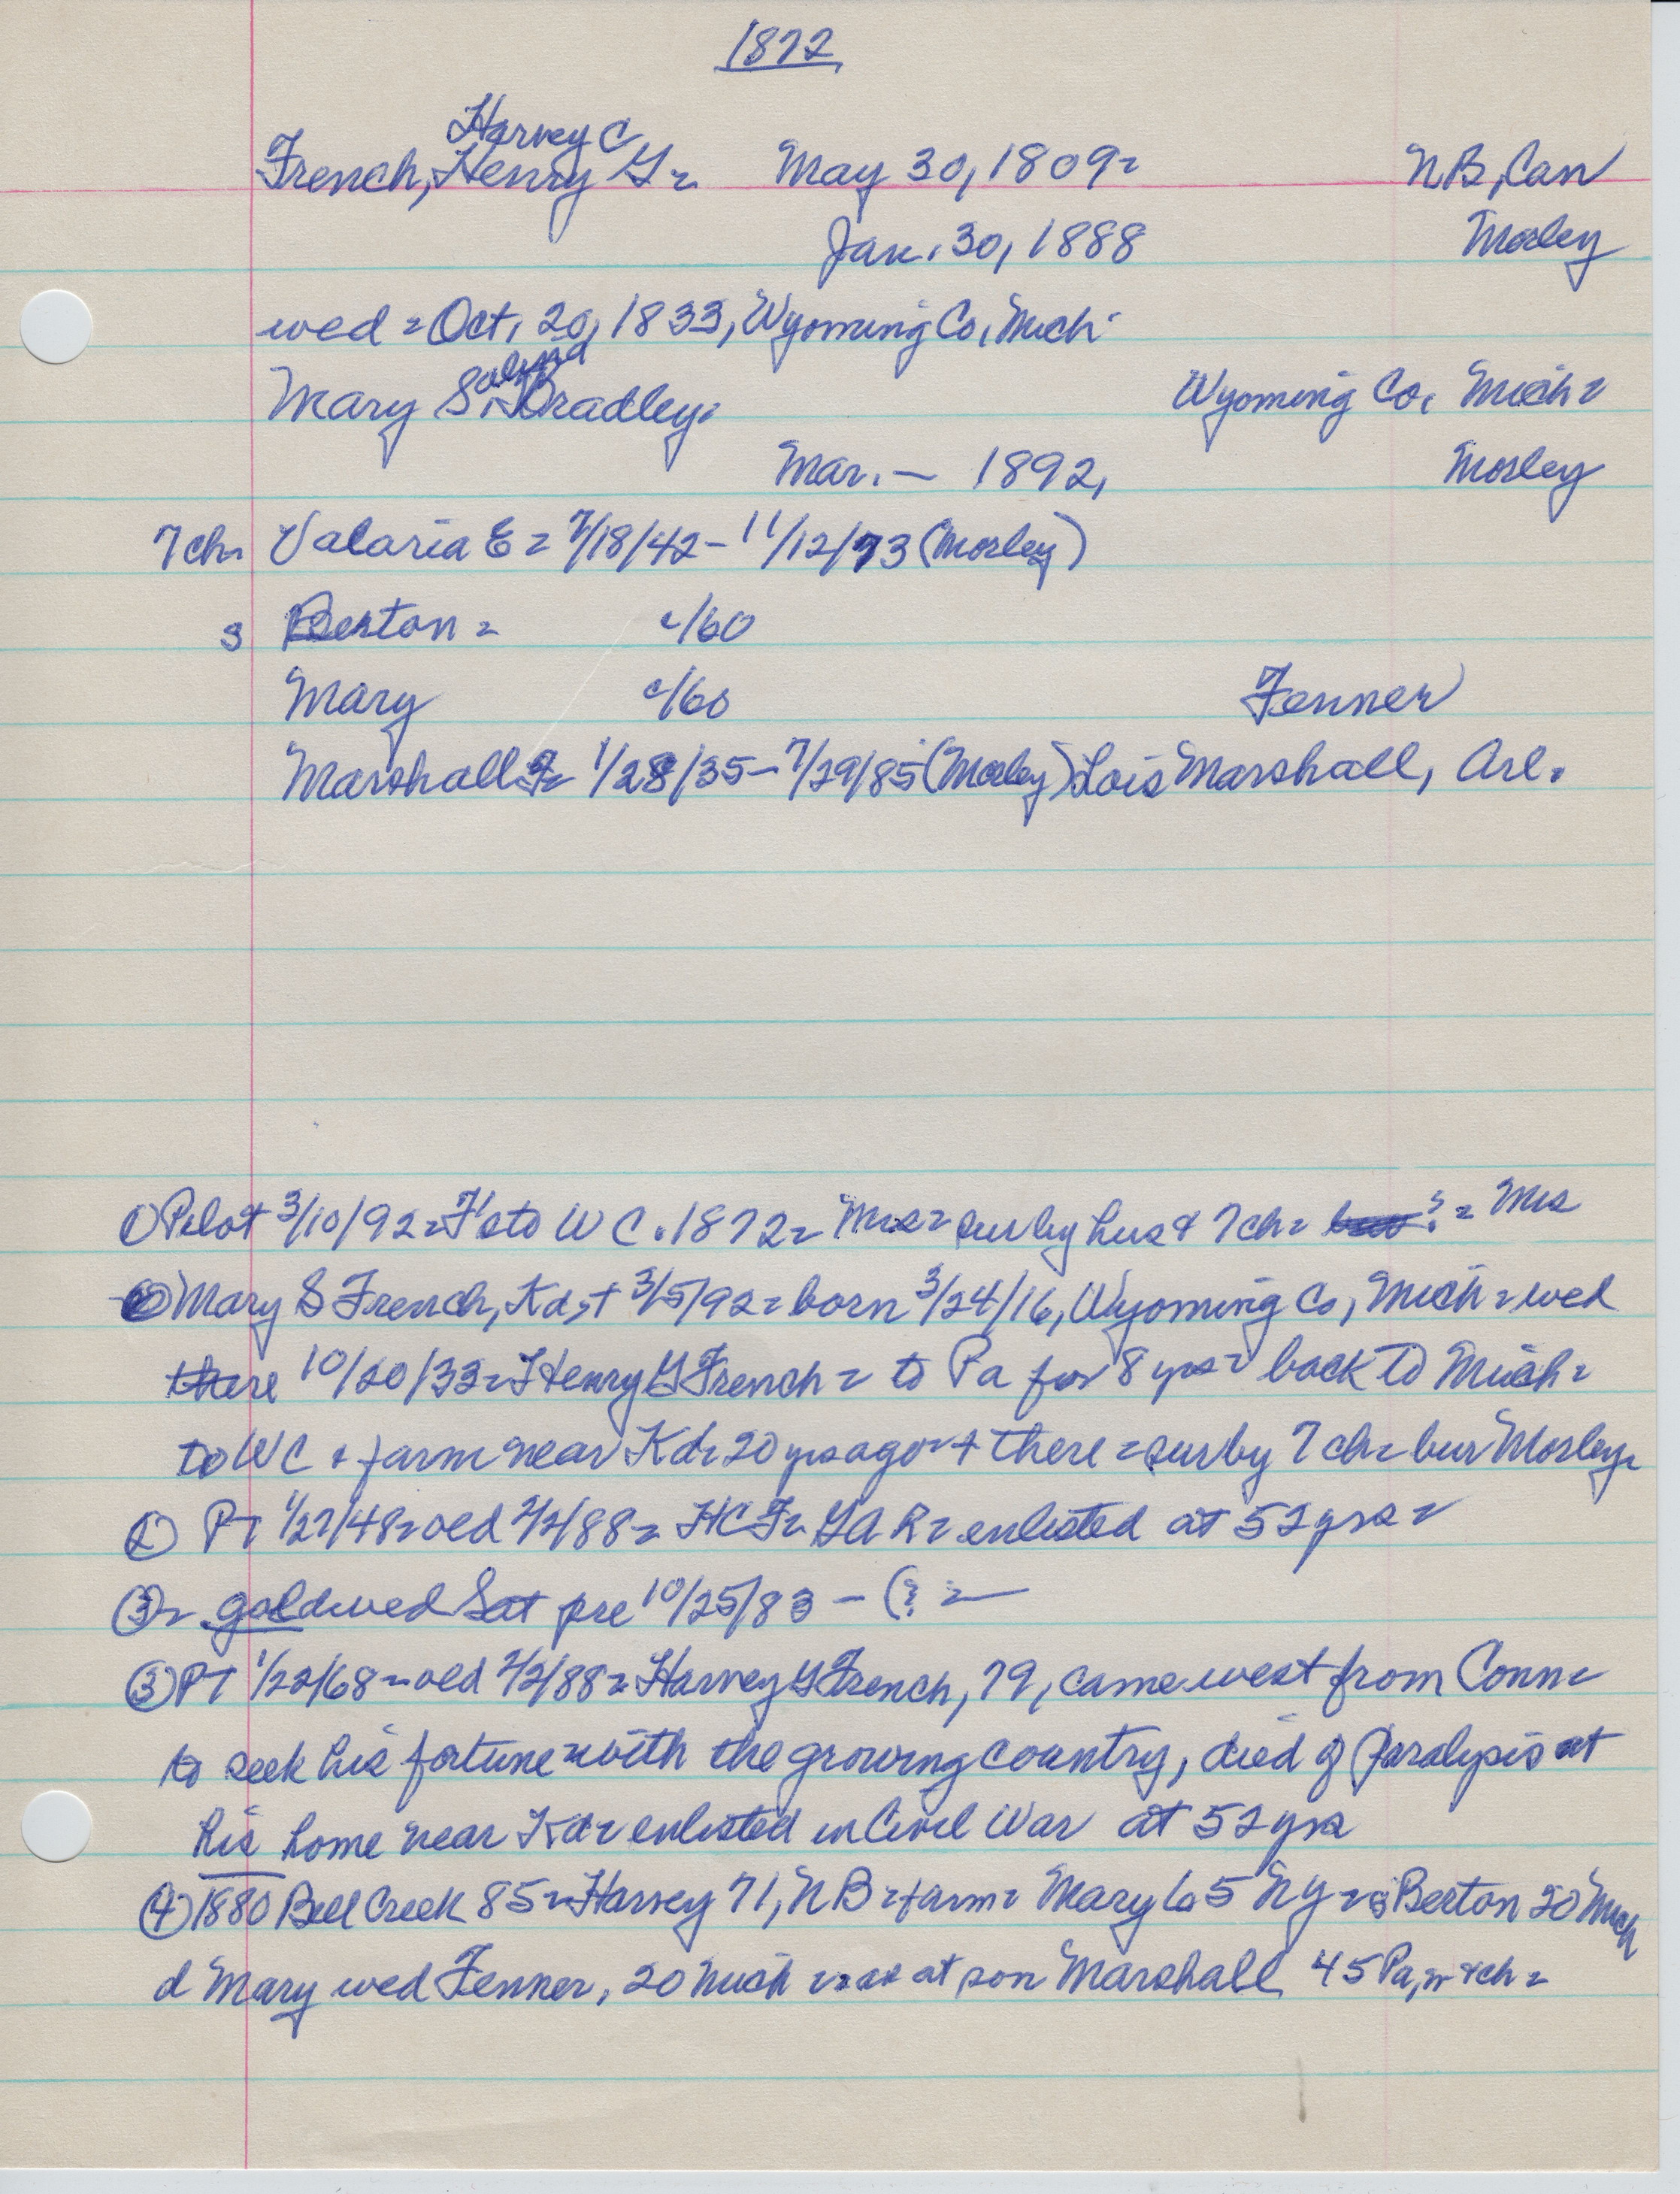 1872
Harvey C
French, Henry G = May 30, 1809 = N.B, Can
Jan. 30, 1888 Mosley
wed = Oct. 20, 1833, Wyoming Co, Mich.
alynd
Mary S. Bradley. Wyoming Co. Mich =
Mar. — 1892, Mosley
7 ch = Valaria E = 7/18/42 - 11/12/73 (Mosley)
s Berton = c/60
Mary c/60 Fenner
Marshall F = 1/28/35 - 7/29/85 (Mosley) Lois Marshall, Arl.
① Pilot 3/10/92 = F's to W C. 1872 = Mrs = sur by hus & 7 ch = ? = Mrs
Mary S French, Kd, + 3/5/92 = born 3/24/16, Wyoming Co, Mich = wed
there 10/20/33 = Henry G French = to Pa for 8 yrs = back to Mich =
to WC & farm near Kd = 20 yrs ago = + there = sur by 7 ch = bur Mosley =
② PT 1/27/48 = old 2/2/88 = HCF = GAR = enlisted at 52 yrs =
③ = gold wed Sat pre 10/25/83 - (? =
③ PT 1/22/68 = old 2/2/88 = Harvey G French, 79, came west from Conn =
to seek his fortune with the growing country, died of paralysis at
his home near Kd = enlisted in Civil War at 52 yrs
④ 1880 Bell Creek 85 = Harvey 71, NB = farm = Mary 65 NY = s Berton 20 Mich
d Mary wed Fenner, 20 Mich = at son Marshall 45 Pa, w & ch =